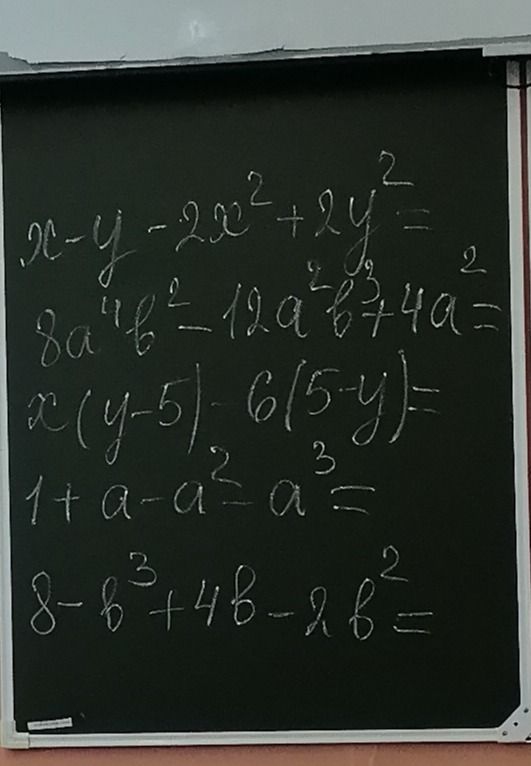 x-y-2x²+2y²=
8a⁴b²-12a²b³+4a²=
x(y-5)-6(5-y)=
1+a-a²-a³=
8-b³+4b-2b²=